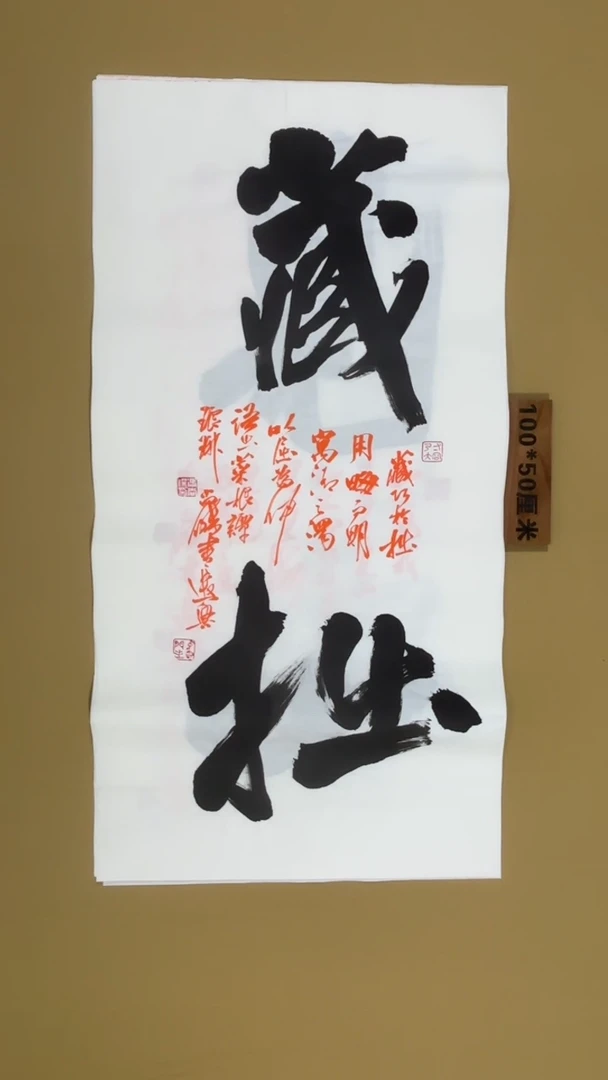 藏拙
藏巧於拙
用晦而明
寓清于濁
以屈為伸
語出菜根譚
書
100*50厘米